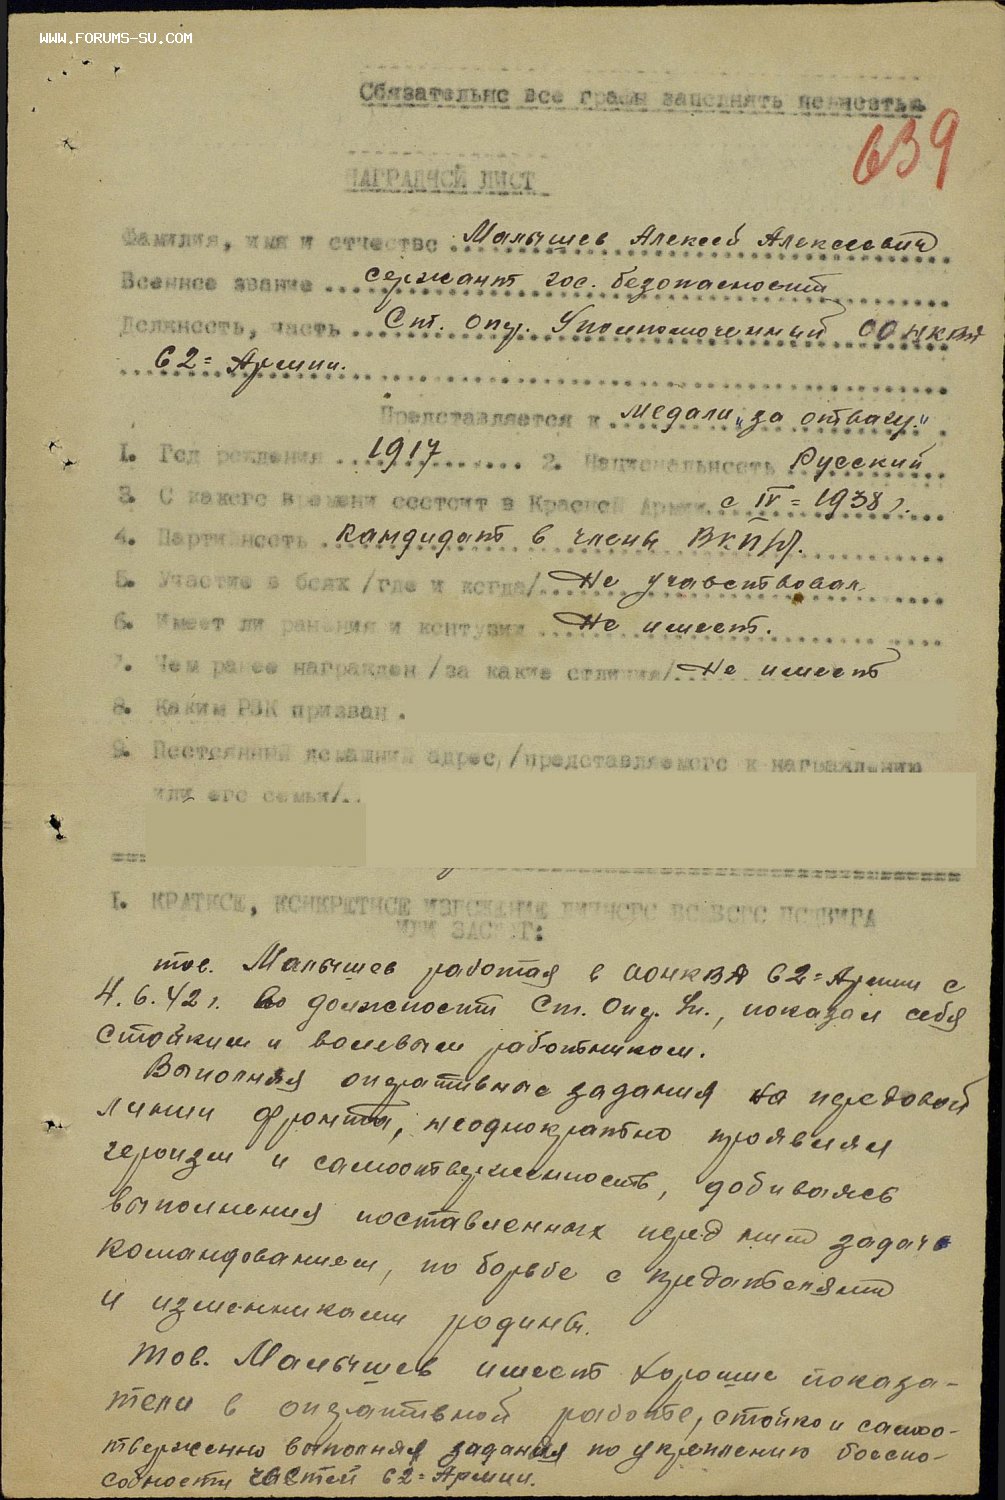 WWW.FORUMS-SU.COM
Обязательно все графы заполнять полностью
639
НАГРАДНОЙ ЛИСТ
Фамилия, имя и отчество Малышев Алексей Алексеевич
Военное звание сержант гос. безопасности
Должность, часть Ст. опер. Уполномоченный ОО НКВД
62= Армии.
Представляется к медали „за отвагу."
1. Год рождения 1917 2. Национальность Русский
3. С какого времени состоит в Красной Армии с IV = 1938 г.
4. Партийность кандидат в члены ВКП/б/.
5. Участие в боях /где и когда/ Не участвовал
6. Имеет ли ранения и контузии Не имеет.
7. Чем ранее награжден /за какие отличия/ Не имеет
8. Каким РВК призван .
9. Постоянный домашний адрес /представляемого к награждению
или его семьи/..
I. КРАТКОЕ, КОНКРЕТНОЕ ИЗЛОЖЕНИЕ ЛИЧНОГО БОЕВОГО ПОДВИГА
ИЛИ ЗАСЛУГ:
тов. Малышев работая в ОО НКВД 62= Армии с
4.6.42 г. во должности Ст. Опер. Уп., показал себя
стойким и волевым работником.
Выполняя оперативные задания на передовой
линии фронта, неоднократно проявлял
героизм и самоотверженность, добиваясь
выполнения поставленных перед ним задач
командованием, по борьбе с предателями
и изменниками родины.
Тов. Малышев имеет хорошие показа-
тели в оперативной работе, стойко и самоо-
тверженно выполняя задания по укреплению боеспо-
собности частей 62= Армии.